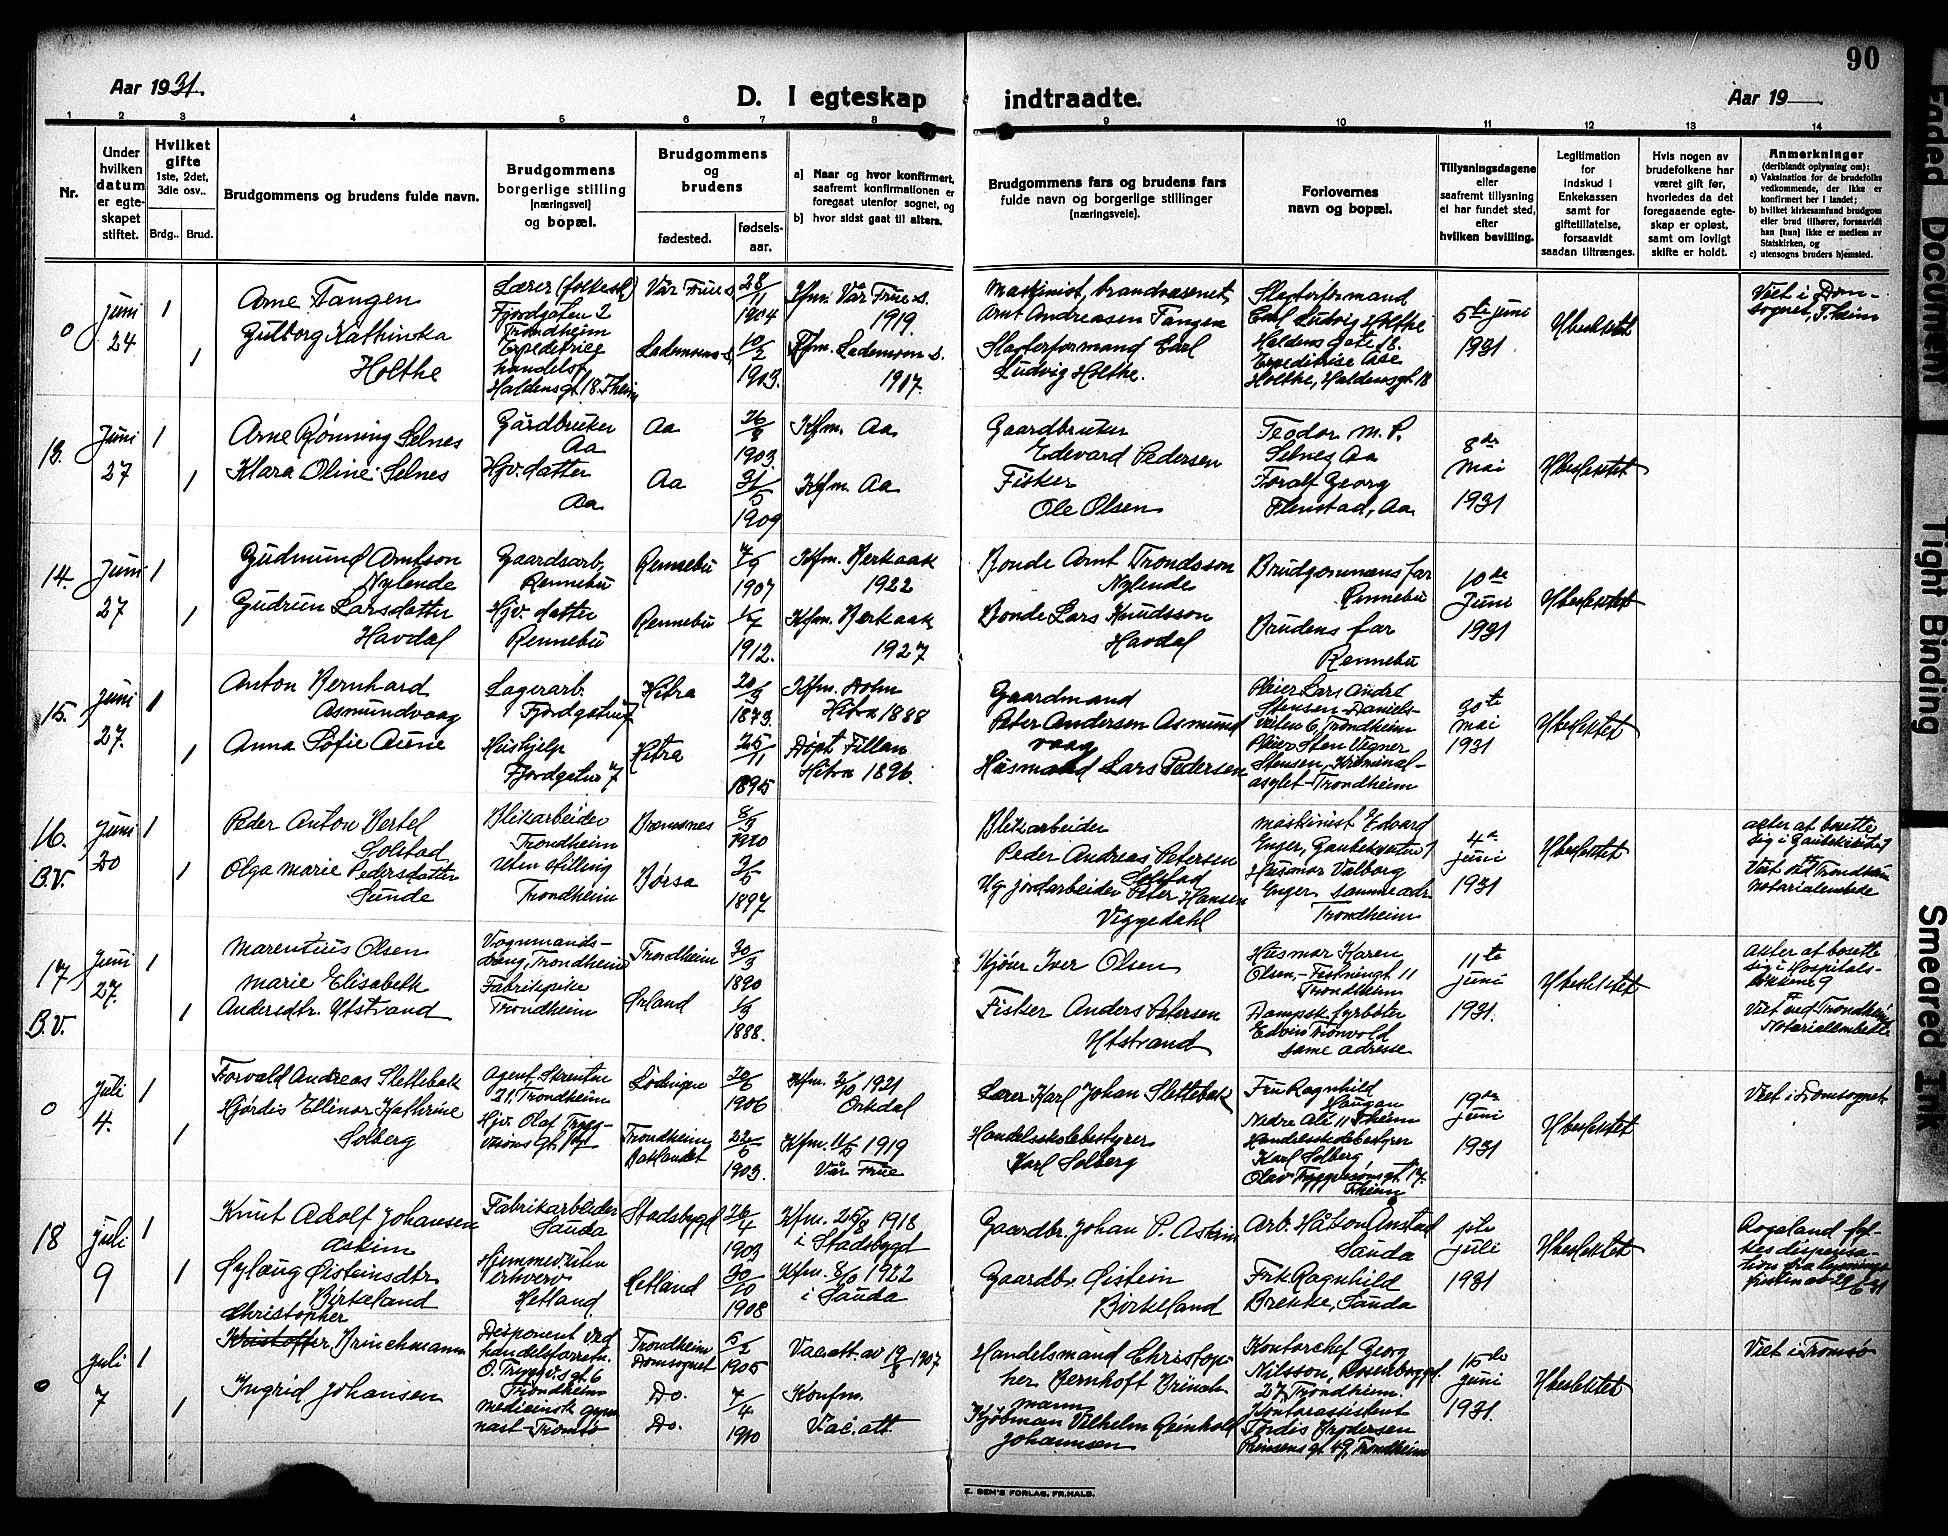 Aar 1931.
D. I egteskap indtraadte.
Aar 19
90
1 2 3 4 5 6 7 8 9 10 11 12 13 14
Nr.
Under hvilken datum er egteskapet stiftet.
Hvilket gifte
1ste, 2det, 3die osv..
Brdg.. Brud.
Brudgommens og brudens fulde navn.
Brudgommens borgerlige stilling (næringsvei) og bopæl.
Brudgommens og brudens
fødested.
fødsels-aar.
a) Naar og hvor konfirmert, saafremt konfirmationen er foregaat utenfor sognet, og
b) hvor sidst gaat til alters.
Brudgommens fars og brudens fars fulde navn og borgerlige stillinger (næringsveie).
Forlovernes navn og bopæl.
Tillysningsdagene eller saafremt tillysning ei har fundet sted, efter hvilken bevilling.
Legitimation for indskud i Enkekassen samt for giftetillatelse, forsaavidt saadan tiltrænges.
Hvis nogen av brudefolkene har været gift før, hvorledes da det foregaaende egteskap er opløst, samt om lovligt skifte er holdt.
Anmerkninger
(deriblandt oplysning om):
a) Vaksination for de brudefolks vedkommende, der ikke er konfirmert her i landet;
b) hvilket kirkesamfund brudgom eller brud tilhører, forsaavidt han [hun] ikke er medlem av Statskirken, og
c) utensogns bruders hjemsted.
0
Juni 24
1
1
Arne Tangen
Gulborg Kathinka
Holthe
Lærer (folkesk.)
Fjordgaten 2
Trondheim
handelsf
Haldensgt. 18. Theim
Vår Frue s.
Lademoen s.
28/11 1904
10/2 1903.
Kfm. Vår Frue s.
1919.
Kfm. Lademoen s.
1917.
Maskinist, brandvæsenet,
Arnt Andreassen Tangen
Slagterformand Carl
Ludvig Holthe.
Slagterformand
Carl Ludvig Holthe
Haldens Gate 18.
Expeditrice Åse
Holthe, Haldensgt. 18
5te juni
1931
Ubeslektet
Viet i Dom-
sognet, T.heim
13.
Juni 27
1
1
Arne Rønning Selnes
Klara Oline Selnes
Gårdbruker
Aa
Hjv. datter
Aa
Aa
Aa
26/8 1903.
31/5 1909
Kfm. Aa
Kfm. Aa
Gaardbruker
Edevard Pedersen
Fisker
Ole Olsen
Teodor M. P.
Selnes Aa
Toralf Georg
Flenstad, Aa
8de
Mai
1931
Ubeslektet
14.
Juni 27
1
1
Gudmund Arntson
Nylende
Gudrun Larsdatter
Havdal
Gaardsarb.
Rennebu
Hjv. datter
Rennebu
Rennebu
Rennebu
7/9 1907
1/7 1912.
Kfm. Berkaak
1922
Kfm. Berkaak
1927
Bonde Arnt Trondsson
Nylende
Bonde Lars Knudsson
Havdal
Brudgommens far
Rennebu
Brudens far
Rennebu
10de
Juni
1931
Ubeslektet
15.
Juni 27.
1
1
Anton Bernhard
Asmundvaag
Anna Sofie Aune
Lagerarb.
Fjordgatu 7
Hushjelp
Fjordgatu 7
Hitra
Hitra
20/9 1873.
25/11 1895
Kfm. Dolm
Hitra 1888
Døpt Fillan
Hitra 1896
Gaardmand
Peter Andersen Asmund
vaag
Husmand Lars Pedersen
Pleier Lars André
Stensen Daniels-
veien 6, Trondheim
Pleier Sten Vegner
Stensen, Kriminal-
asylet - Trondheim
30te
mai
1931
Ubeslektet
16.
B.V.
Juni 20
1
1
Peder Anton Bertel
Solstad
Olga Marie Pedersdatter
Sunde
Blikarbeider
Trondheim
Uten stilling
Trondheim
Bremsnes
Børsa
1897
Blikarbeider
Peder Andreas Petersen
Solstad
Ug. jordarbeider Peter Hansen
Viggedahl
Maskinist Edvard
Enger,
Husmor Valborg
Enger samme adr.
Trondheim
4de
juni
1931
Ubeslektet
akter at bosette
sig i
Viet ved Trondheim
Notarialembede
17
B.V.
Juni 27.
1
1
Marentius Olsen
Marie Elisabeth
Andersdtr. Utstrand
Vognmands-
dreng, Trondheim
Fabrikpike
Trondheim
Trondheim
Ørland
30/3 1890
1/3 1888.
Kjører Iver Olsen
Fisker Anders Petersen
Utstrand
Husmor Karen
Olsen,
Trondheim
Dampsk. fyrbøter
same adresse
11te
juni
1931.
Ubeslektet
akter at bosette
sig i Hospitals-
løkkene 9
Viet ved Trondheim
Notarialembede
0
Juli 4.
1
1
Torvald Andreas Slettebak
Hjørdis Ellinor Kathrine
Solberg
Agent,
21, Trondheim
Hjv. Olaf Trygg-
vasons gt. 17
Lødingen
Trondheim
Baklandet
20/6 1906
22/5 1903.
Kfm. 2/10 1921
Orkdal
Kfm. 11/5 1919
Vår Frue
Lærer Karl Johan Slettebak
Handelsskolebestyrer
Karl Solberg
Fru Ragnhild
Haugan
Nedre Allé 11 T.heim
Handelsskolebestyrer
Karl Solberg
Olav Tryggvasonsgt. 17.
T.heim
19de
juni
1931
Ubeslektet
Viet i Domsognet
18
juli 9
1
1
Knut Adolf Johansen
Askim
Sylaug Øisteinsdtr
Birkeland
Fabrikarbeider
Sauda
Hjemmev. uten
erhverv
Hetland
Stadsbygd
Hetland
26/4 1903
30/10 1908
Kfm. 25/8 1918
i Stadsbygd
Kfm. 8/10 1922
i Sauda
Gaardbr. Johan P. Askim
Gaardbr. Øistein
Birkeland
Arb. Håkon Anstad
Sauda
Frk Ragnhild
Brekke, Sauda
juli
1931
Ubeslektet
Rogaland fyl-
kes dispensa-
tion fra lysnings-
fristen av 29/6 31
0
juli 7
1
1
Christopher
Kristoffer Brinchmann
Ingrid Johansen
Disponent ved
handelsforretn.
O. Tryggv.s gt. 6
Trondheim
medicinsk gym
nast - Tromsø
Trondheim
Domsognet
Do.
Do.
5/2 1905
7/4 1910
Vacatt. av 19/8 1907
Konfm.
Vac. att.
Handelsmand Christop-
her Bernhoft Brinch
mann
Kjøbman Vilhelm Reinhold
Johannsen
Kontorchef Georg
Nilsson, Rosenborggt.
27, Trondheim.
Kontorassistent
Tordis Brodersen
Prinsens gt. 49, Trondheim
15de
juni
1931.
Ubeslektet
Viet i Tromsø
E. SEM'S FORLAG, FR.HALD.
Faded Document
Tight Binding
Smeared Ink